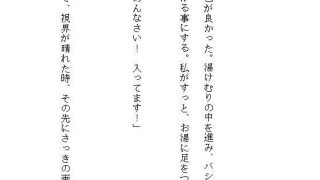 色が良かった。湯けむりの中を進み、バシ
がる事にする。私がすっと、お湯に足をつ
めんなさい！　入ってます！」
、視界が晴れた時、その先にさっきの